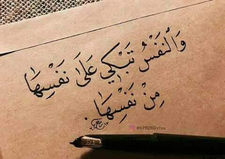 وَالنَفْسُ تَبْكِي عَلَىٰ نَفْسِهَا
مِنْ نَفْسِهَا